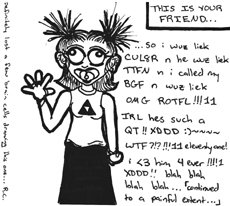 THIS IS YOUR
FRIEND...
...so i wuz liek
CUL8R n he wuz liek
TTFN n i called my
BGF n wuz liek
OMG ROTFL!!!11
IRL hes such a
QT!! XDDD :)~~~~
WTF?!?!!!11 eleventyone!
i <3 him 4 ever !!!!1
XDDD!! blah blah
blah blah... "continued
to a painful extent..."
Definitely lost a few brain cells drawing this one... R.C.